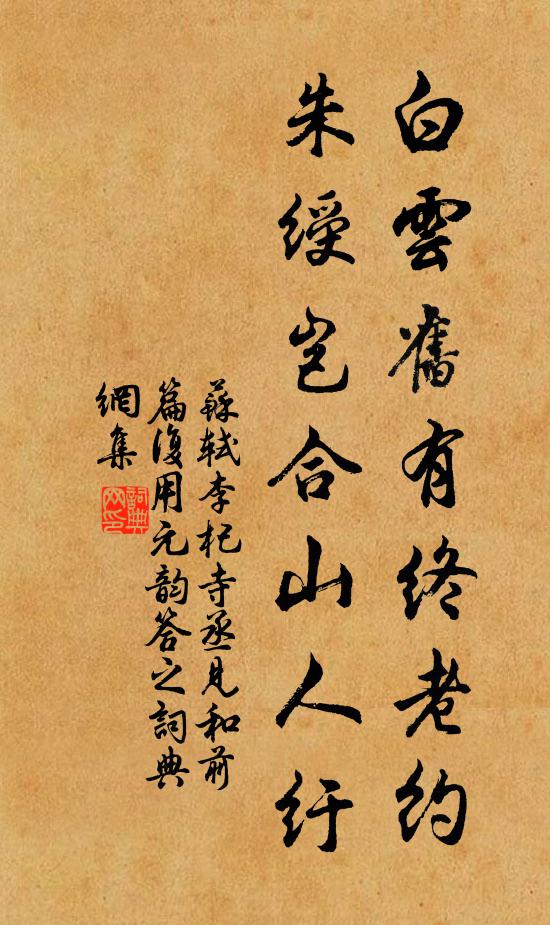 白雲舊有終老約
朱綬豈合山人紆
蘇軾李杞寺丞見和前
篇復用元韵答之詞典
網集
詞典
网印